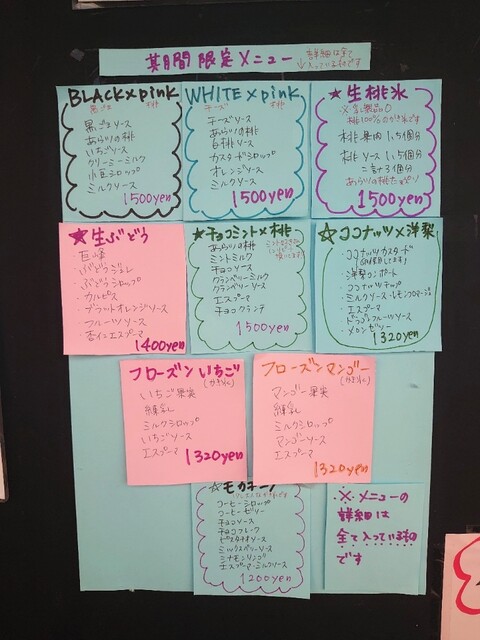 期間限定メニュー
詳細は全て
入っている材です
BLACK×pink
黒ゴマ 桃
黒ごまソース
あらごしの桃
いちごソース
クリーミーミルク
小豆シロップ
ミルクソース
1500yen
WHITE×pink
チーズ 桃
チーズソース
あらごしの桃
白桃ソース
カスタードシロップ
オレンジソース
ミルクソース
1500yen
★生桃氷
桃100%のかき氷です
桃果肉1.5個分
桃ソース1.5個分
二計3個分
1500yen
★生ぶどう
・巨峰
・ぶどうジュレ
・ぶどうシロップ
・カルピス
・ブラッドオレンジソース
・フルーツソース
・杏仁エスプーマ
1400yen
★チョコミント×桃
あらごしの桃
ミントミルク
チョコソース
クランベリーミルク
クランベリーソース
エスプーマ
チョコクランチ
1500yen
☆ココナッツ×洋梨
・ココナッツカスタード
・洋梨コンポート
・ココナッツチップ
・ミルクソース・レモンコアージュ
・エスプーマ
・ドラゴンフルーツソース
・メロンゼリー
1320yen
フローズンいちご
(かき氷)
いちご果実
練乳
ミルクシロップ
いちごソース
エスプーマ
1320yen
フローズンマンゴー
(かき氷)
マンゴー果実
練乳
ミルクシロップ
マンゴーソース
エスプーマ
1320yen
☆モカチーノ
コーヒーシロップ
コーヒーゼリー
チョコソース
チョコフレーク
ピスタチオソース
ミックスベリーソース
シナモンリンゴ
エスプーマ・ミルクソース
1200yen
※メニューの
詳細は
全て入っている物
です